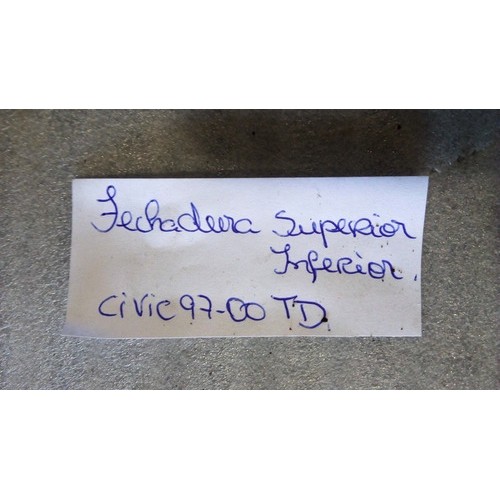 Fechadura Superior
Inferior.
Civic 97-00 TD